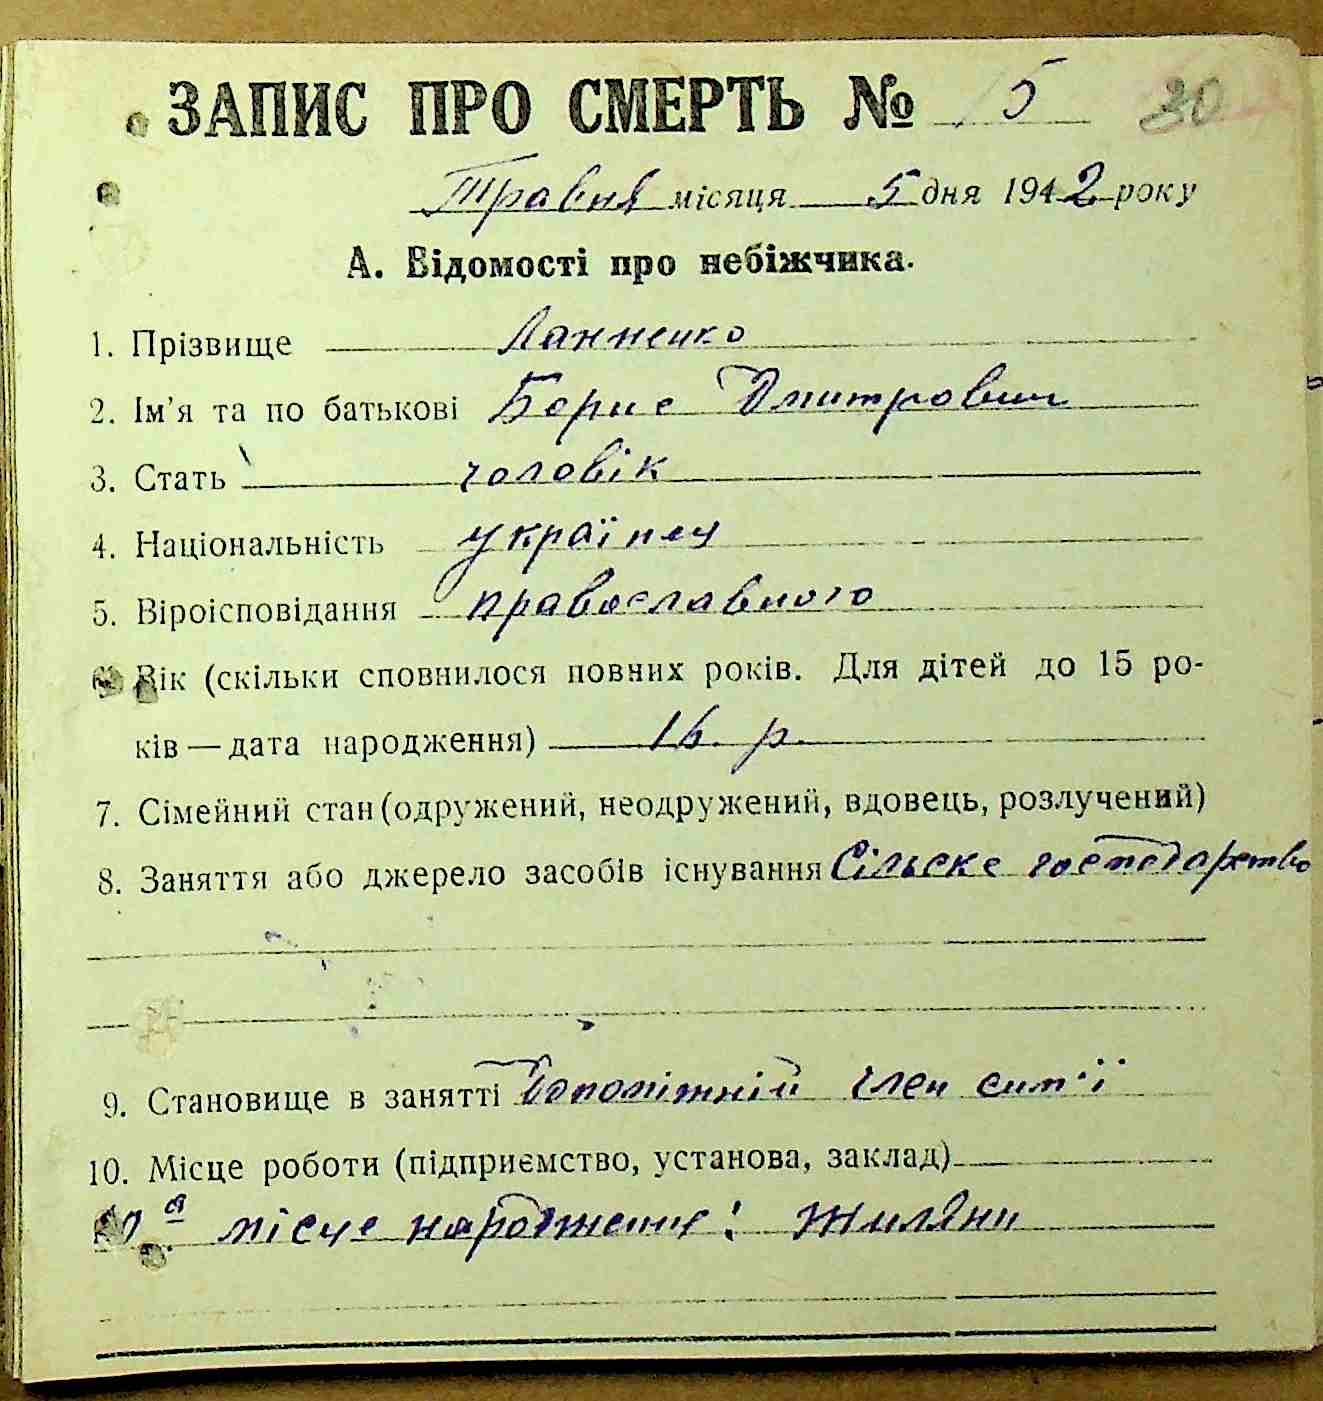 ЗАПИС ПРО СМЕРТЬ № 5 30
Травня місяця 5 дня 1942 року
А. Відомості про небіжчика.
1. Прізвище Ланненко
2. Ім'я та по батькові Борис Дмитрович
3. Стать чоловік
4. Національність українец
5. Віроісповідання православного
Вік (скільки сповнилося повних років. Для дітей до 15 ро-
ків — дата народження) 16 р.
7. Сімейний стан (одружений, неодружений, вдовець, розлучений)
8. Заняття або джерело засобів існування Сільске господарство
9. Становище в занятті Допоміжній член сим'ї
10. Місце роботи (підприємство, установа, заклад)
10а місце народження: Жиляни